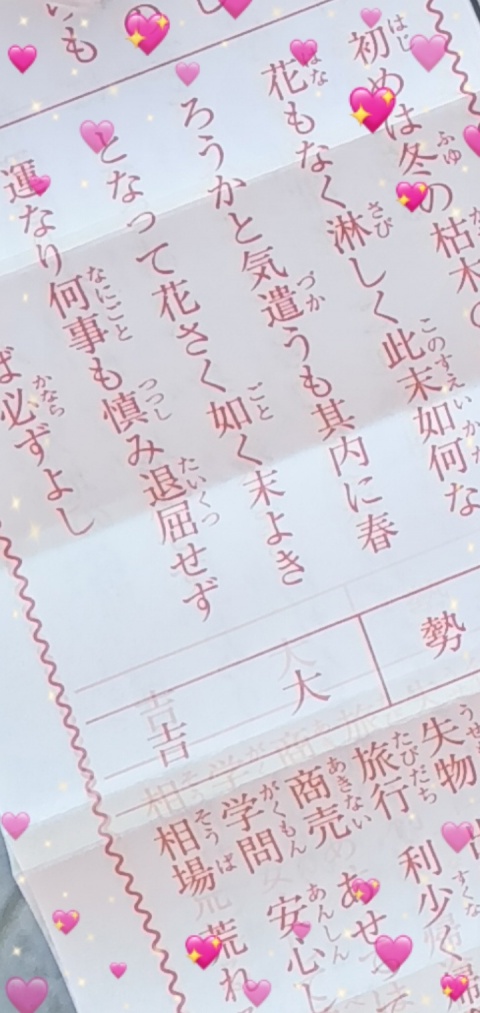 初めは冬の枯木の
花もなく淋しく此末如何な
ろうかと気遣うも其内に春
となって花さく如く末よき
運なり何事も慎み退屈せず
ば必ずよし
勢
大
吉
失物
旅行 利少く
商売 あせ
学問 安心し
相場 荒れ